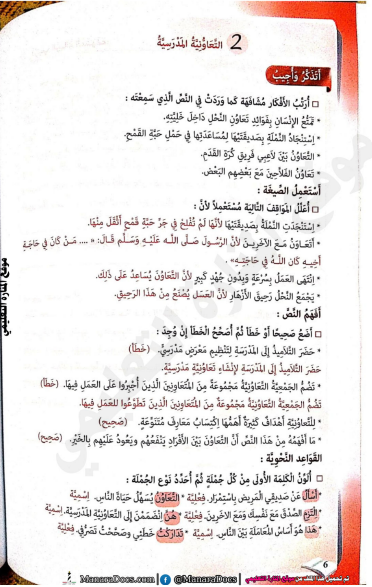 2 التَّعَاوُنِيَّةُ الْمَدْرَسِيَّةُ
أَتَذَكَّرُ وَأُجِيبُ
□ أُرَتِّبُ الأَفْكَارَ مُشَافَهَةً كَمَا وَرَدَتْ فِي النَّصِّ الَّذِي سَمِعْتُه :
* تَمَتُّعُ الإِنْسَانِ بِفَوَائِدِ تَعَاوُنِ النَّحْلِ دَاخِلَ خَلِيَّتِهِ.
* اِسْتِنْجَادُ النَّمْلَةِ بِصَدِيقَتَيْهَا لِمُسَاعَدَتِهَا فِي حَمْلِ حَبَّةِ الْقَمْحِ.
* التَّعَاوُنُ بَيْنَ لَاعِبِي فَرِيقِ كُرَةِ القَدَمِ.
* تَعَاوُنُ الفَلَّاحِينَ مَعَ بَعْضِهِم البَعْضِ.
أَسْتَعْمِلُ الصِّيغَةَ :
□ أُعَلِّلُ المَوَاقِفَ التَّالِيَةَ مُسْتَعْمِلاً لأَنَّ :
* اِسْتَنْجَدَتِ النَّمْلَةُ بِصَدِيقَتَيْهَا لأَنَّهَا لَمْ تُفْلِحْ فِي جَرِّ حَبَّةِ قَمْحٍ أَثْقَلَ مِنْهَا.
* أَتَعَاوَنُ مَعَ الآخَرِينَ لأَنَّ الرَّسُولَ صَلَّى اللَّه عَلَيْهِ وَسَلَّم قَالَ: « .... مَنْ كَانَ فِي حَاجَةِ
أَخِيهِ كَانَ اللَّهُ فِي حَاجَتِهِ».
* اِنْتَهَى العَمَلُ بِسُرْعَةٍ وَبِدُونِ جُهْدٍ كَبِيرٍ لأَنَّ التَّعَاوُنَ يُسَاعِدُ عَلَى ذَلِكَ.
* يَجْمَعُ النَّحْلُ رَحِيقَ الأَزْهَارِ لأَنَّ العَسَلَ يُصْنَعُ مِنْ هَذَا الرَّحِيقِ.
أَفْهَمُ النَّصَّ :
□ أَضَعُ صَحِيحًا أَوْ خَطَأً ثُمَّ أُصَحِّحُ الخَطَأَ إِنْ وُجِدَ :
* حَضَرَ التَّلَامِيذُ إِلَى المَدْرَسَةِ لِتَنْظِيمِ مَعْرَضٍ مَدْرَسِيٍّ. (خَطَأ)
حَضَرَ التَّلَامِيذُ إِلَى المَدْرَسَةِ لإِنْشَاءِ تَعَاوُنِيَّةٍ مَدْرَسِيَّةٍ.
* تَضُمُّ الجَمْعِيَّةُ التَّعَاوُنِيَّةُ مَجْمُوعَةً مِنَ المُتَعَاوِنِينَ الَّذِينَ أُجْبِرُوا عَلَى العَمَلِ فِيهَا. (خَطَأ)
تَضُمُّ الجَمْعِيَّةُ التَّعَاوُنِيَّةُ مَجْمُوعَةً مِنَ المُتَعَاوِنِينَ الَّذِينَ تَطَوَّعُوا لِلعَمَلِ فِيهَا.
* لِلتَّعَاوُنِيَّةِ أَهْدَافٌ كَثِيرَةٌ أَهَمُّهَا اِكْتِسَابُ مَعَارِفَ مُتَنَوِّعَةٍ. (صَحِيح)
* مَا أَفْهَمُهُ مِنْ هَذَا النَّصِّ أَنَّ التَّعَاوُنَ بَيْنَ الأَفْرَادِ يَنْفَعُهُم وَيَعُودُ عَلَيْهِم بِالخَيْرِ. (صَحِيح)
القَوَاعِدُ النَّحْوِيَّةُ :
□ أُلَوِّنُ الْكَلِمَةَ الأُولَى مِنْ كُلِّ جُمْلَةٍ ثُمَّ أُحَدِّدُ نَوْعَ الجُمْلَةِ :
* أَسْأَلُ عَنْ صَدِيقِي المَرِيضِ بِاسْتِمْرَارٍ. فِعْلِيَّة * التَّعَاوُنُ يُسَهِّلُ حَيَاةَ النَّاسِ. اِسْمِيَّة
* اِلْتَزِمِ الصِّدْقَ مَعَ نَفْسِكَ وَمَعَ الآخَرِينَ. فِعْلِيَّة * هُنَّ انْضَمَمْنَ إِلَى التَّعَاوُنِيَّةِ المَدْرَسِيَّةِ. اِسْمِيَّة
* هَذَا هُوَ أَسَاسُ المُعَامَلَةِ بَيْنَ النَّاسِ. اِسْمِيَّة * تَدَارَكْتُ خَطَئِي وَصَحَّحْتُ تَصَرُّفِي. فِعْلِيَّة
6
موقع المنارة التعليمي
تم تحميل هذا الملف من موقع المنارة التعليمي
ManaraDocs.com @ManaraDocs ManaraDocs.com